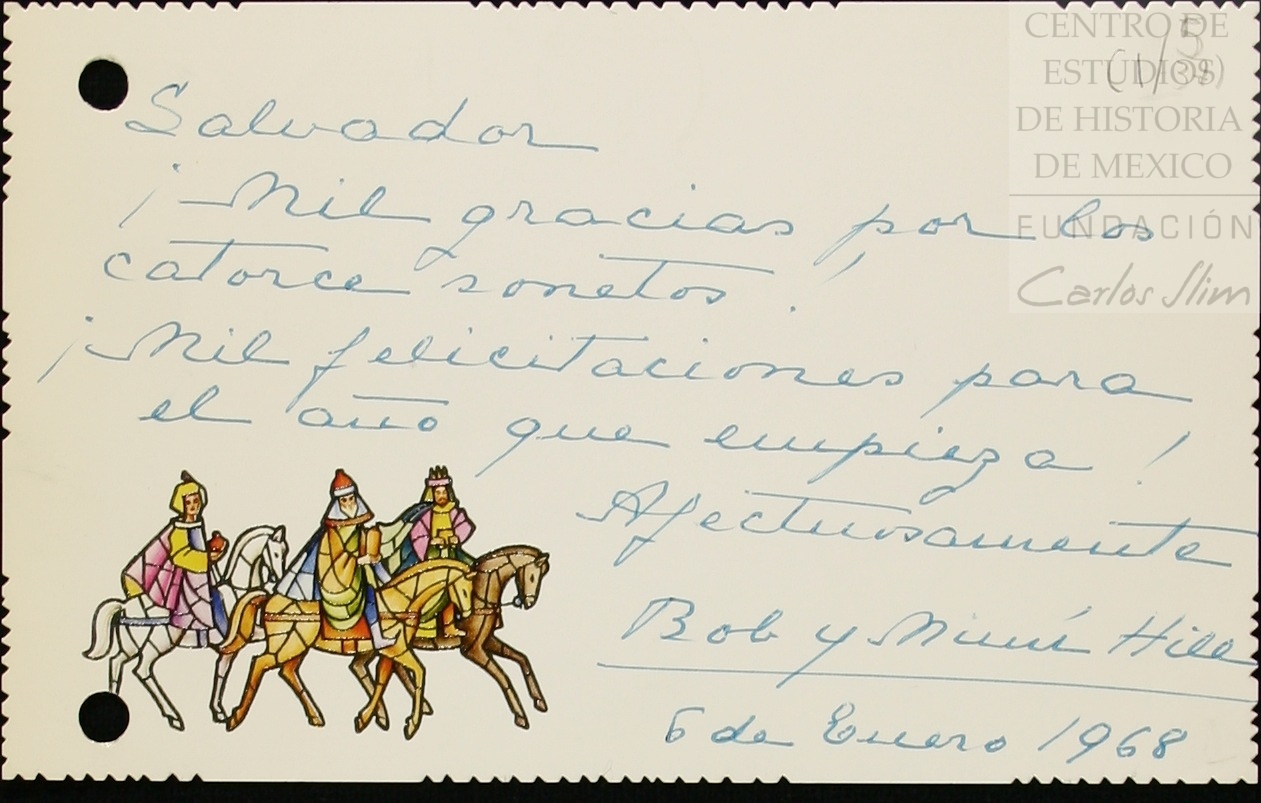 CENTRO DE
ESTUDIOS
DE HISTORIA
DE MEXICO
FUNDACIÓN
Carlos Slim
Salvador
¡Mil gracias por los
catorce sonetos!
¡Mil felicitaciones para
el año que empieza!
Afectuosamente
Bob y Mimí Hill
de Enero 1968